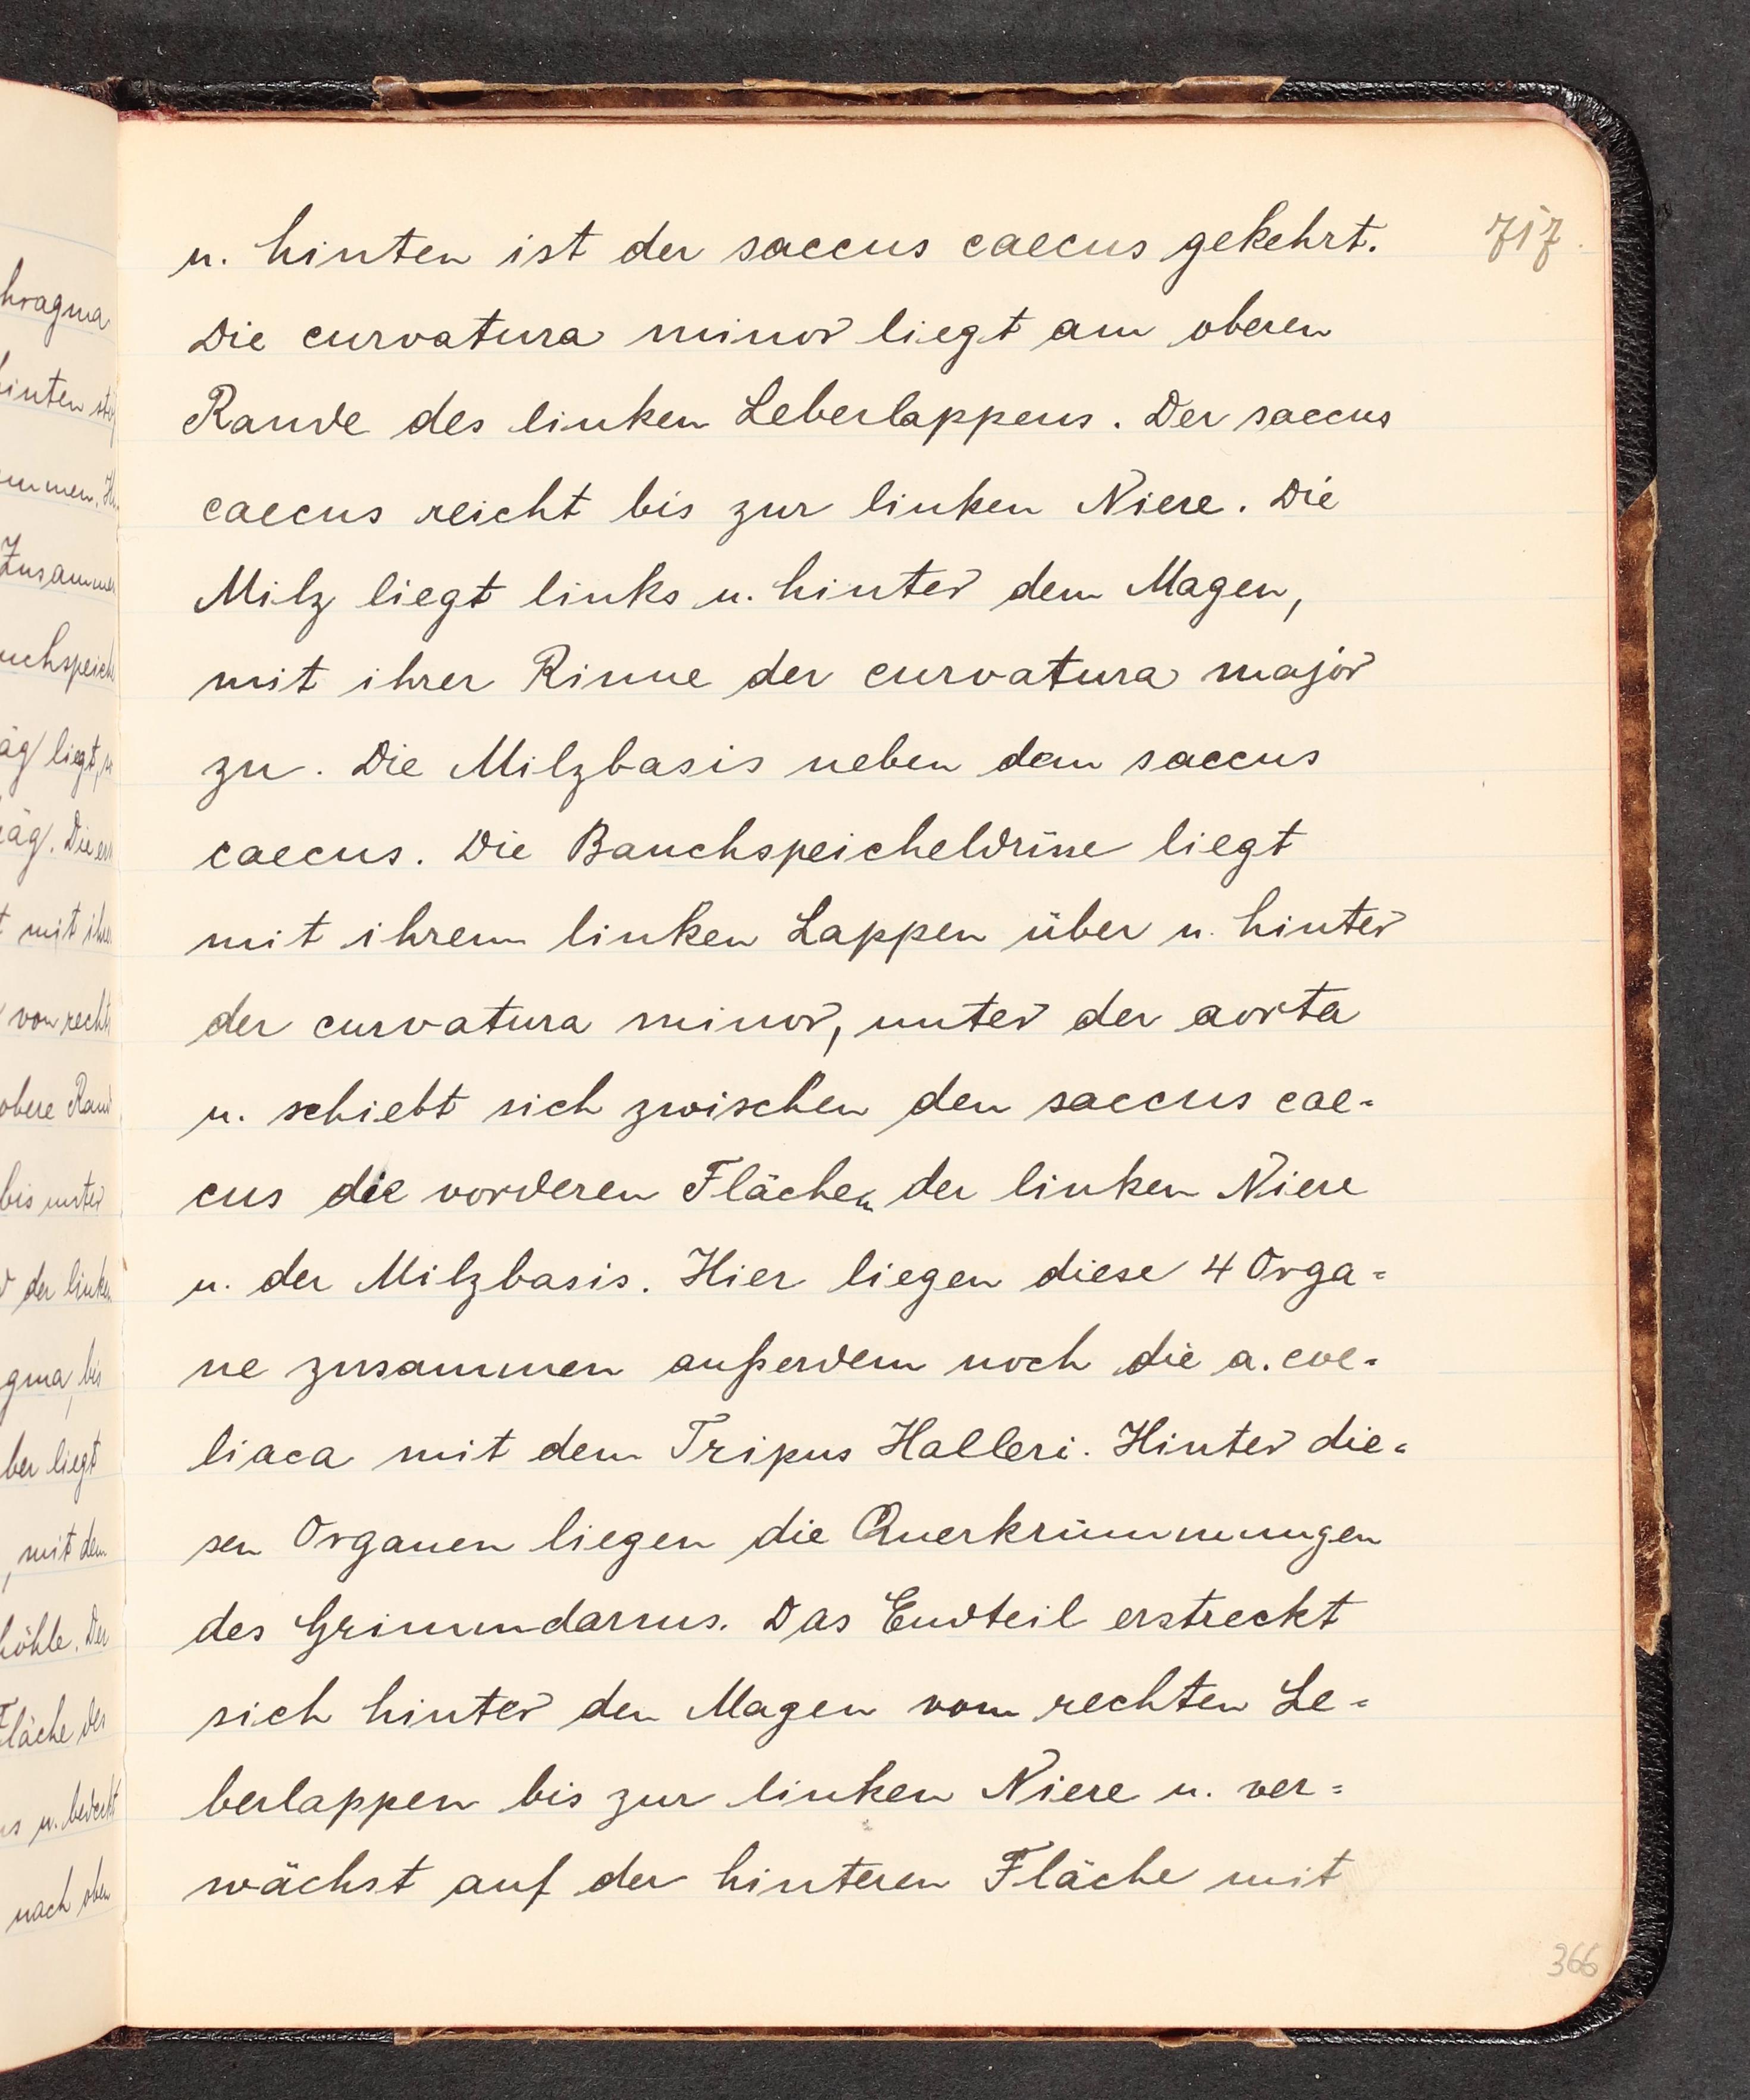 717.
u. hinten ist der saccus caecus gekehrt.
Die curvatura minor liegt am oberen
Rande des linken Leberlappens. Der saccus
caecus reicht bis zur linken Niere. Die
Milz liegt links u. hinter dem Magen,
mit ihrer Rinne der curvatura major
zu. Die Milzbasis neben dem saccus
caecus. Die Bauchspeicheldrüse liegt
mit ihrem linken Lappen über u. hinter
der curvatura minor, unter der aorta
u. schiebt sich zwischen den saccus cae-
cus die vorderen Flächen der linken Niere
u. der Milzbasis. Hier liegen diese 4 Orga-
ne zusammen außerdem noch die a. coe-
liaca mit dem Tripus Halleri. Hinter die-
sen Organen liegen die Querkrümmungen
des Grimmdarms. Das Endteil erstreckt
sich hinter den Magen vom rechten Le-
berlappen bis zur linken Niere u. ver-
wächst auf der hinteren Fläche mit
366
hragma
hinten
mmen.
Zusammen
uchspeich
äg/ liegt,
äg/. Die
t mit ihre
von rechts
obere Rand
bis unter
der linken
gma, bis
ber liegt
, mit dem
höhle. Der
Fläche des
s u. bedeckt
nach oben